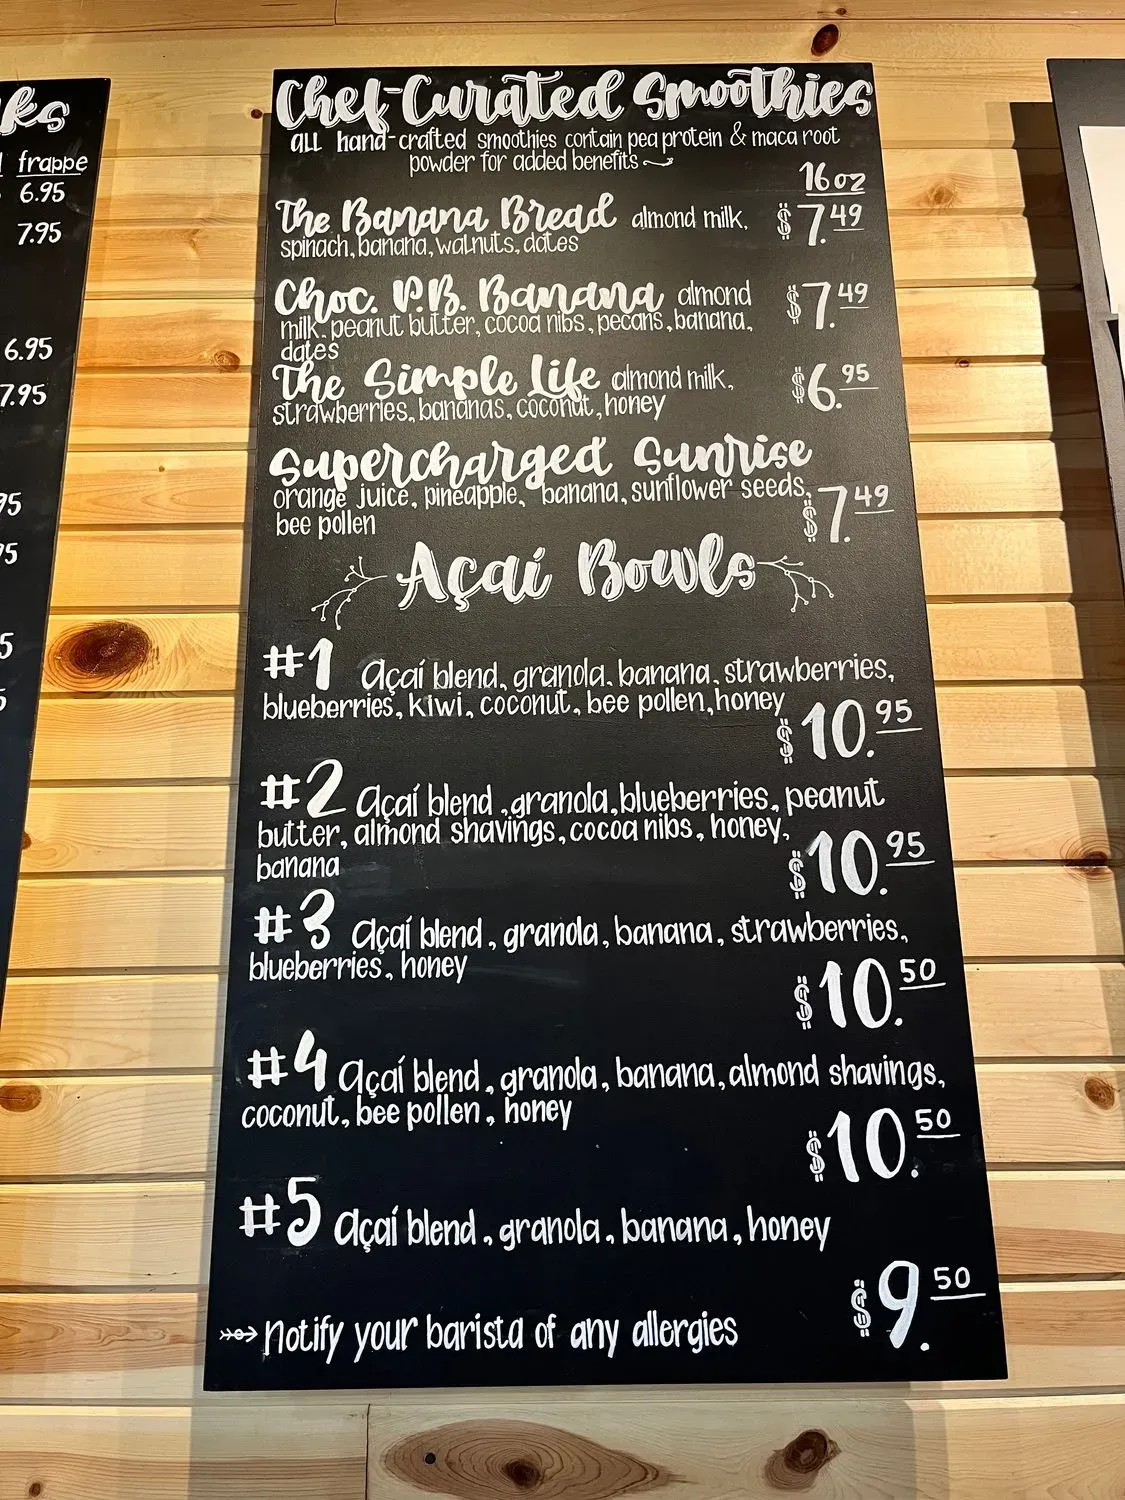 ks
frappe
6.95
7.95
6.95
7.95
95
95
5
5
Chef-Curated Smoothies
all hand-crafted smoothies contain pea protein & maca root
powder for added benefits
16oz
The Banana Bread almond milk, $7.49
spinach, banana, walnuts, dates
Choc. P.B. Banana almond $7.49
milk, peanut butter, cocoa nibs, pecans, banana,
dates
The Simple Life almond milk, $6.95
strawberries, bananas, coconut, honey
Supercharged Sunrise
orange juice, pineapple, banana, sunflower seeds, $7.49
bee pollen
Açaí Bowls
#1 Açaí blend, granola, banana, strawberries,
blueberries, kiwi, coconut, bee pollen, honey
$10.95
#2 Açaí blend, granola, blueberries, peanut
butter, almond shavings, cocoa nibs, honey,
banana $10.95
#3 Açaí blend, granola, banana, strawberries,
blueberries, honey
$10.50
#4 Açaí blend, granola, banana, almond shavings,
coconut, bee pollen, honey
$10.50
#5 Açaí blend, granola, banana, honey
$9.50
Notify your barista of any allergies